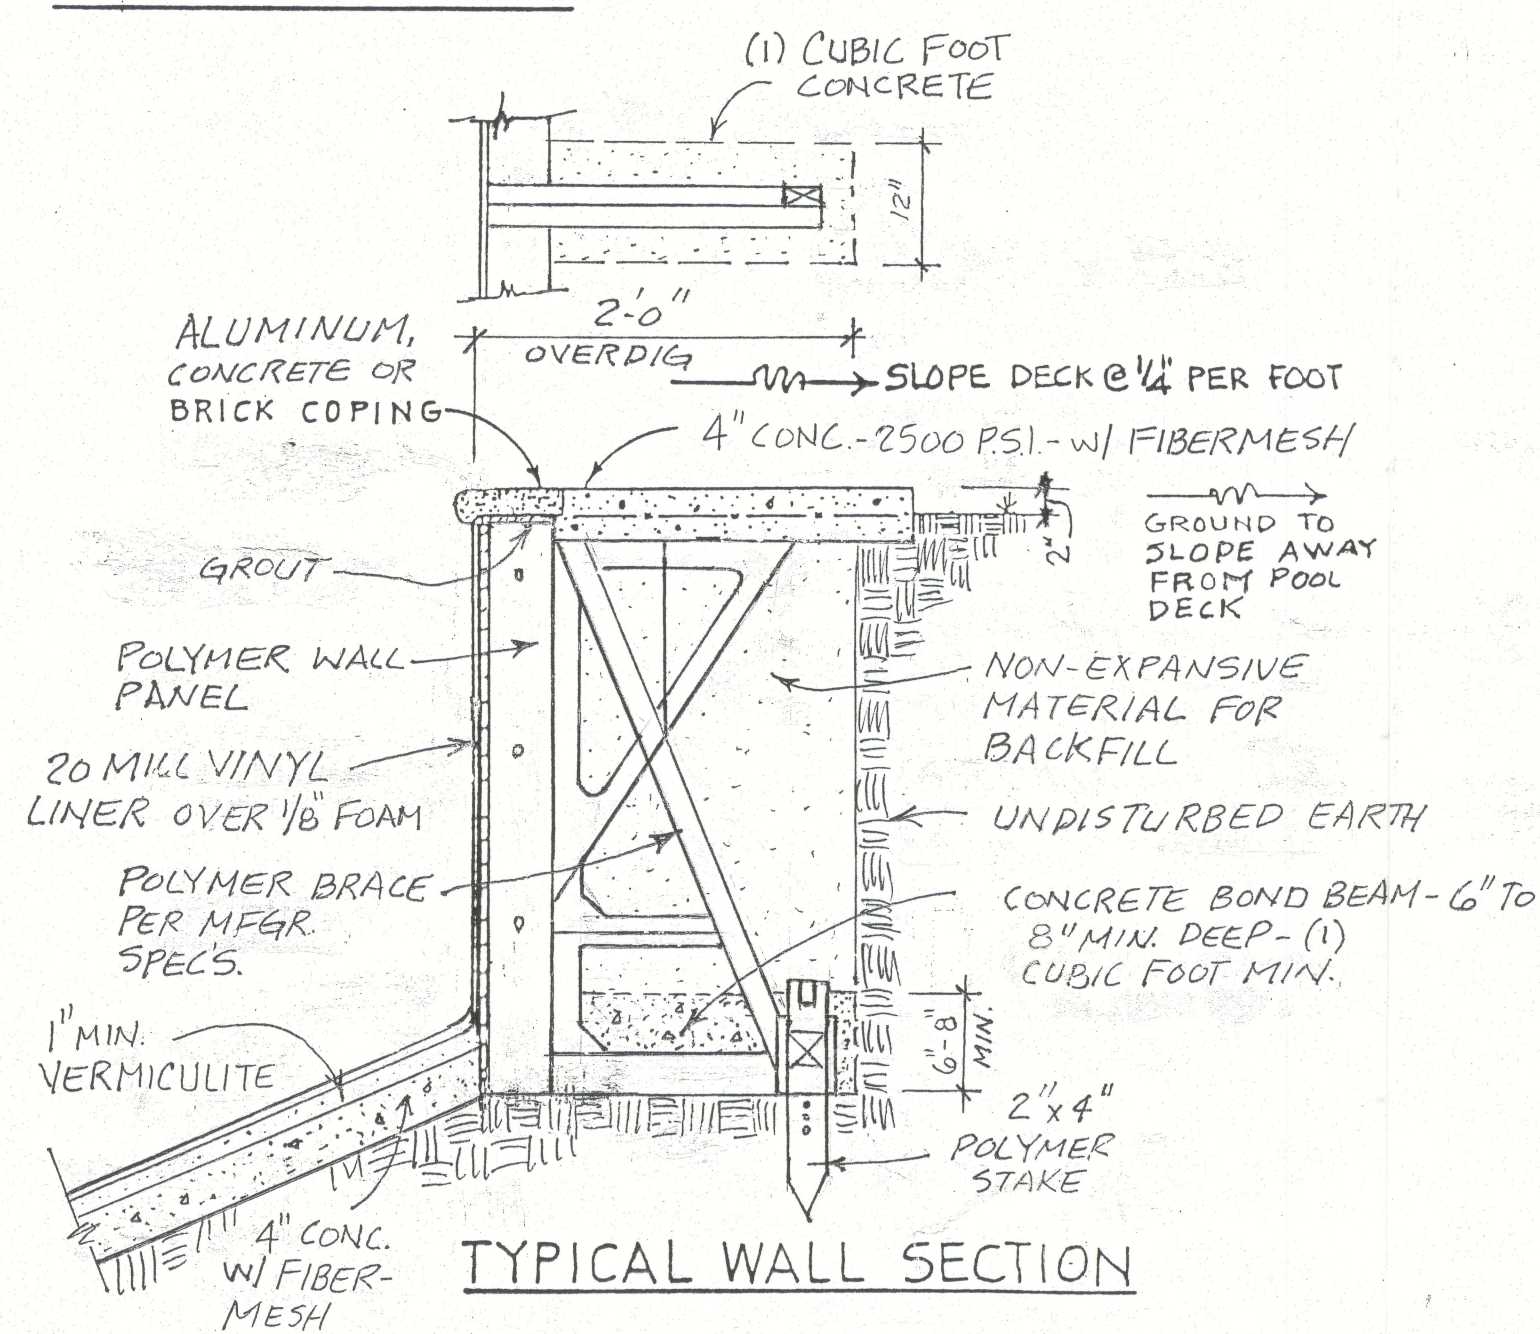 (1) CUBIC FOOT
CONCRETE
12"
2'-0"
OVERDIG
ALUMINUM,
CONCRETE OR
BRICK COPING
SLOPE DECK @ 1/4" PER FOOT
4" CONC.-2500 P.S.I.-W/ FIBERMESH
2"
GROUND TO
SLOPE AWAY
FROM POOL
DECK
GROUT
POLYMER WALL
PANEL
NON-EXPANSIVE
MATERIAL FOR
BACKFILL
20 MILL VINYL
LINER OVER 1/8" FOAM
UNDISTURBED EARTH
POLYMER BRACE
PER MFGR.
SPEC'S.
CONCRETE BOND BEAM-6" TO
8" MIN. DEEP-(1)
CUBIC FOOT MIN.
6"-8"
MIN.
1" MIN.
VERMICULITE
2"x4"
POLYMER
STAKE
4" CONC.
W/ FIBER-
MESH
TYPICAL WALL SECTION